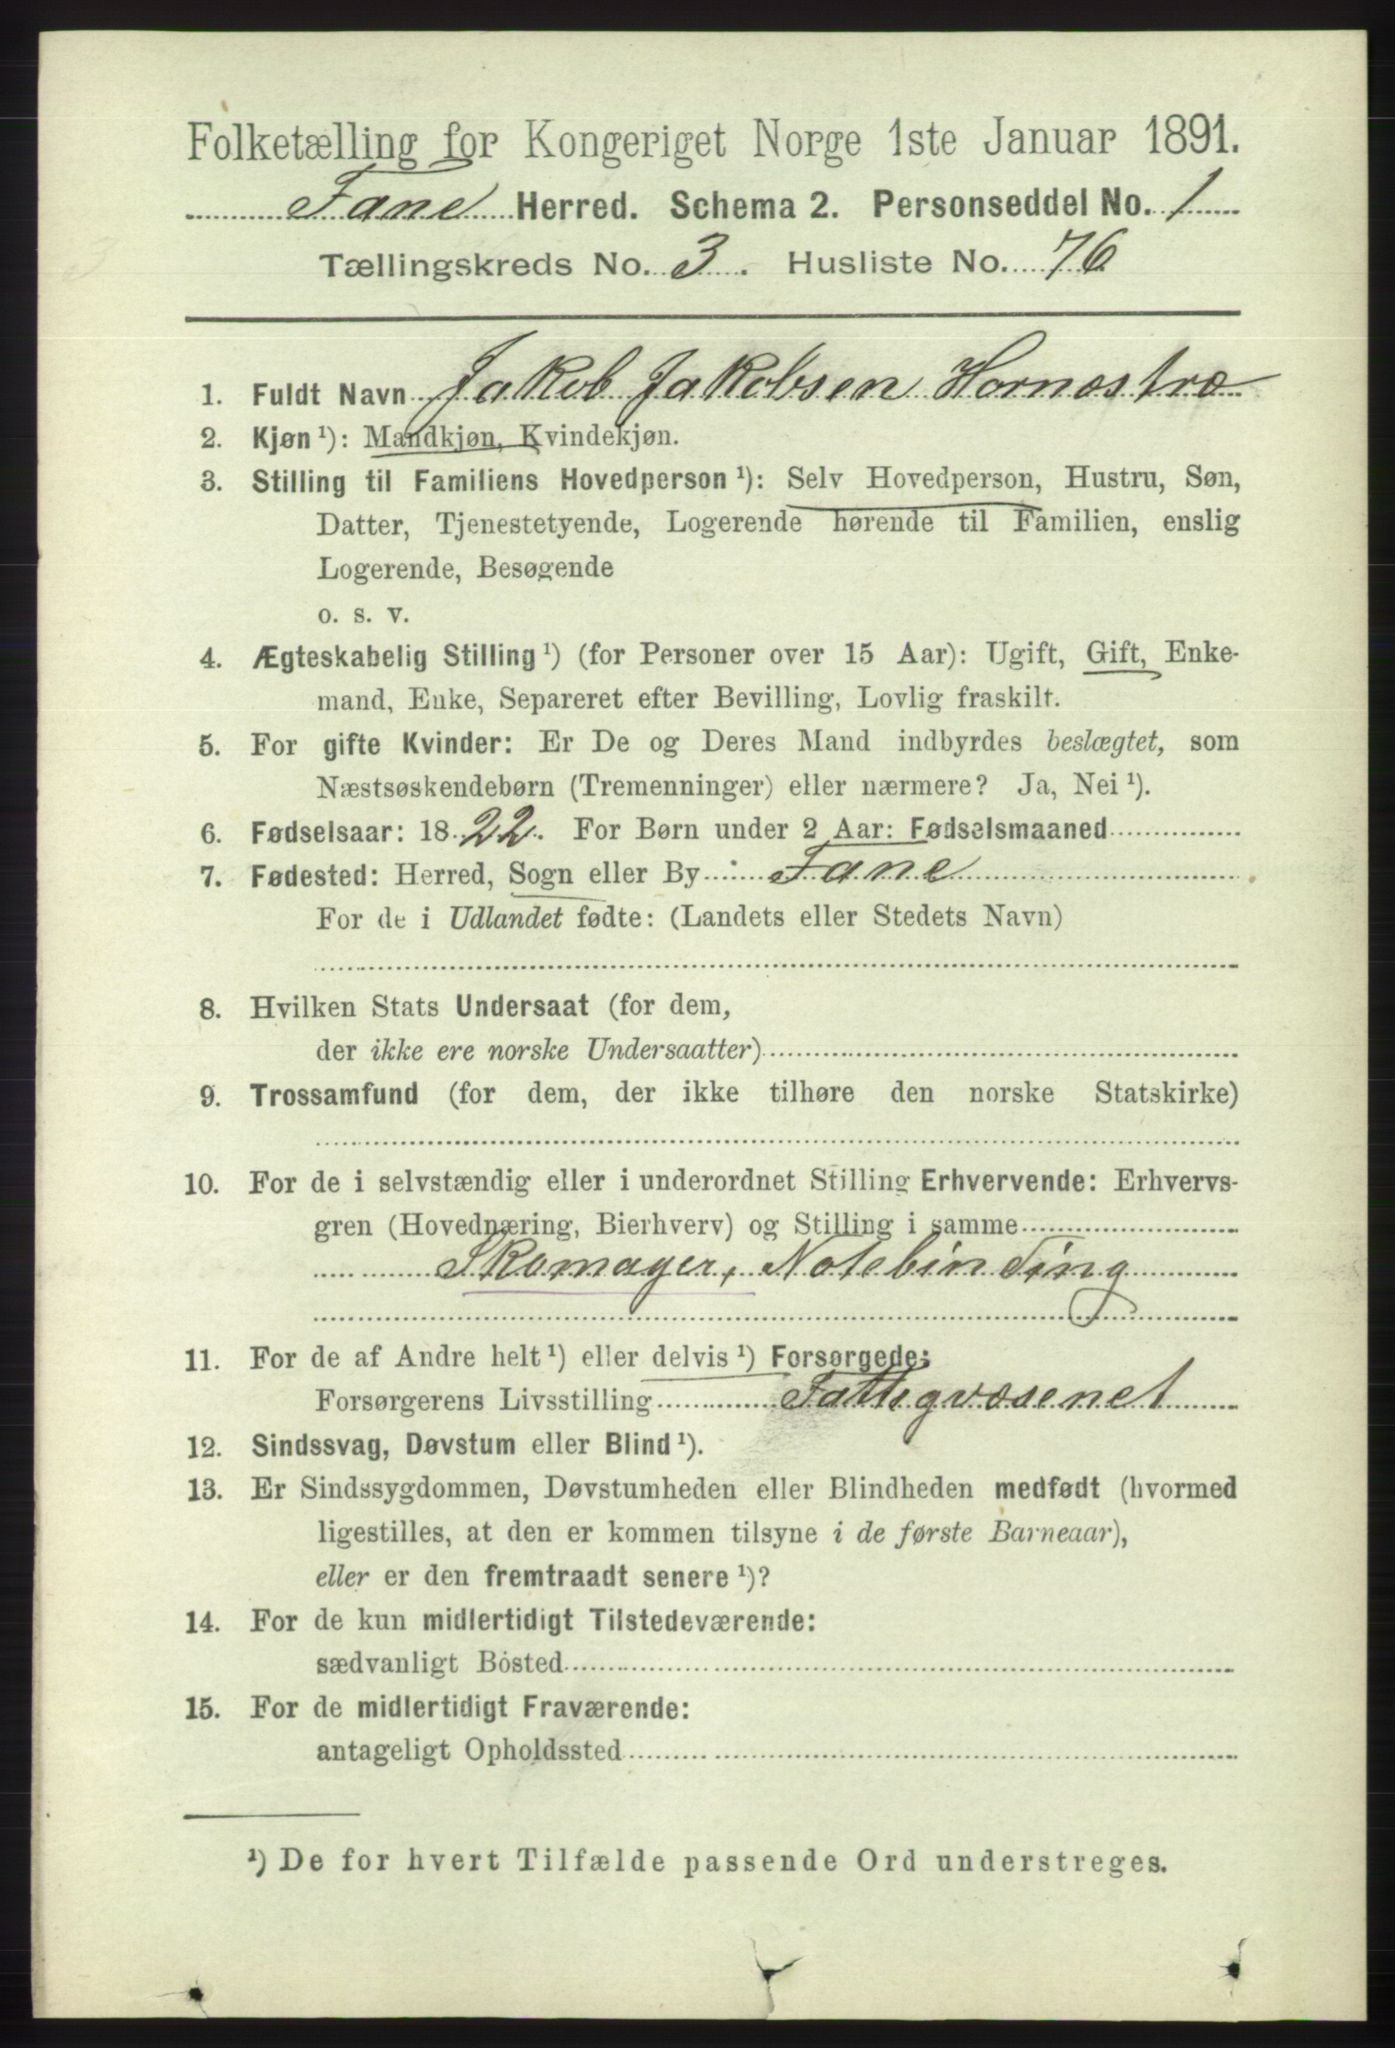 Folketælling for Kongeriget Norge 1ste Januar 1891.
Fane Herred. Schema 2. Personseddel No. 1
Tællingskreds No. 3. Husliste No. 76
1. Fuldt Navn Jakob Jakobsen Hornæstræ
2. Kjøn ¹): Mandkjøn, Kvindekjøn.
3. Stilling til Familiens Hovedperson ¹): Selv Hovedperson, Hustru, Søn,
Datter, Tjenestetyende, Logerende hørende til Familien, enslig
Logerende, Besøgende
o. s. v.
4. Ægteskabelig Stilling ¹) (for Personer over 15 Aar): Ugift, Gift, Enke-
mand, Enke, Separeret efter Bevilling, Lovlig fraskilt.
5. For gifte Kvinder: Er De og Deres Mand indbyrdes beslægtet, som
Næstsøskendebørn (Tremenninger) eller nærmere? Ja, Nei ¹).
6. Fødselsaar: 1822. For Børn under 2 Aar: Fødselsmaaned
7. Fødested: Herred, Sogn eller By Fane
For de i Udlandet fødte: (Landets eller Stedets Navn)
8. Hvilken Stats Undersaat (for dem,
der ikke ere norske Undersaatter)
9. Trossamfund (for dem, der ikke tilhøre den norske Statskirke)
10. For de i selvstændig eller i underordnet Stilling Erhvervende: Erhvervs-
gren (Hovednæring, Bierhverv) og Stilling i samme
Skomager, Notebinding
11. For de af Andre helt ¹) eller delvis ¹) Forsørgede:
Forsørgerens Livsstilling Fattigvæsenet
12. Sindssvag, Døvstum eller Blind ¹).
13. Er Sindssygdommen, Døvstumheden eller Blindheden medfødt (hvormed
ligestilles, at den er kommen tilsyne i de første Barneaar),
eller er den fremtraadt senere ¹)?
14. For de kun midlertidigt Tilstedeværende:
sædvanligt Bosted
15. For de midlertidigt Fraværende:
antageligt Opholdssted
¹) De for hvert Tilfælde passende Ord understreges.